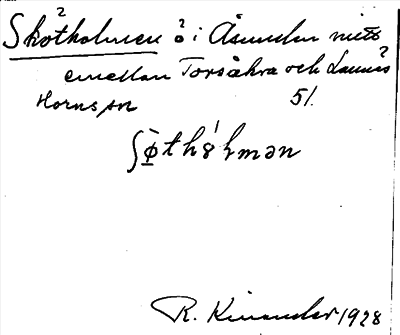 Skötholmen ö i Åsunden mitt
emellan Torsåkra och Lunnås
Horns sn 51.
R. Kinander 1928